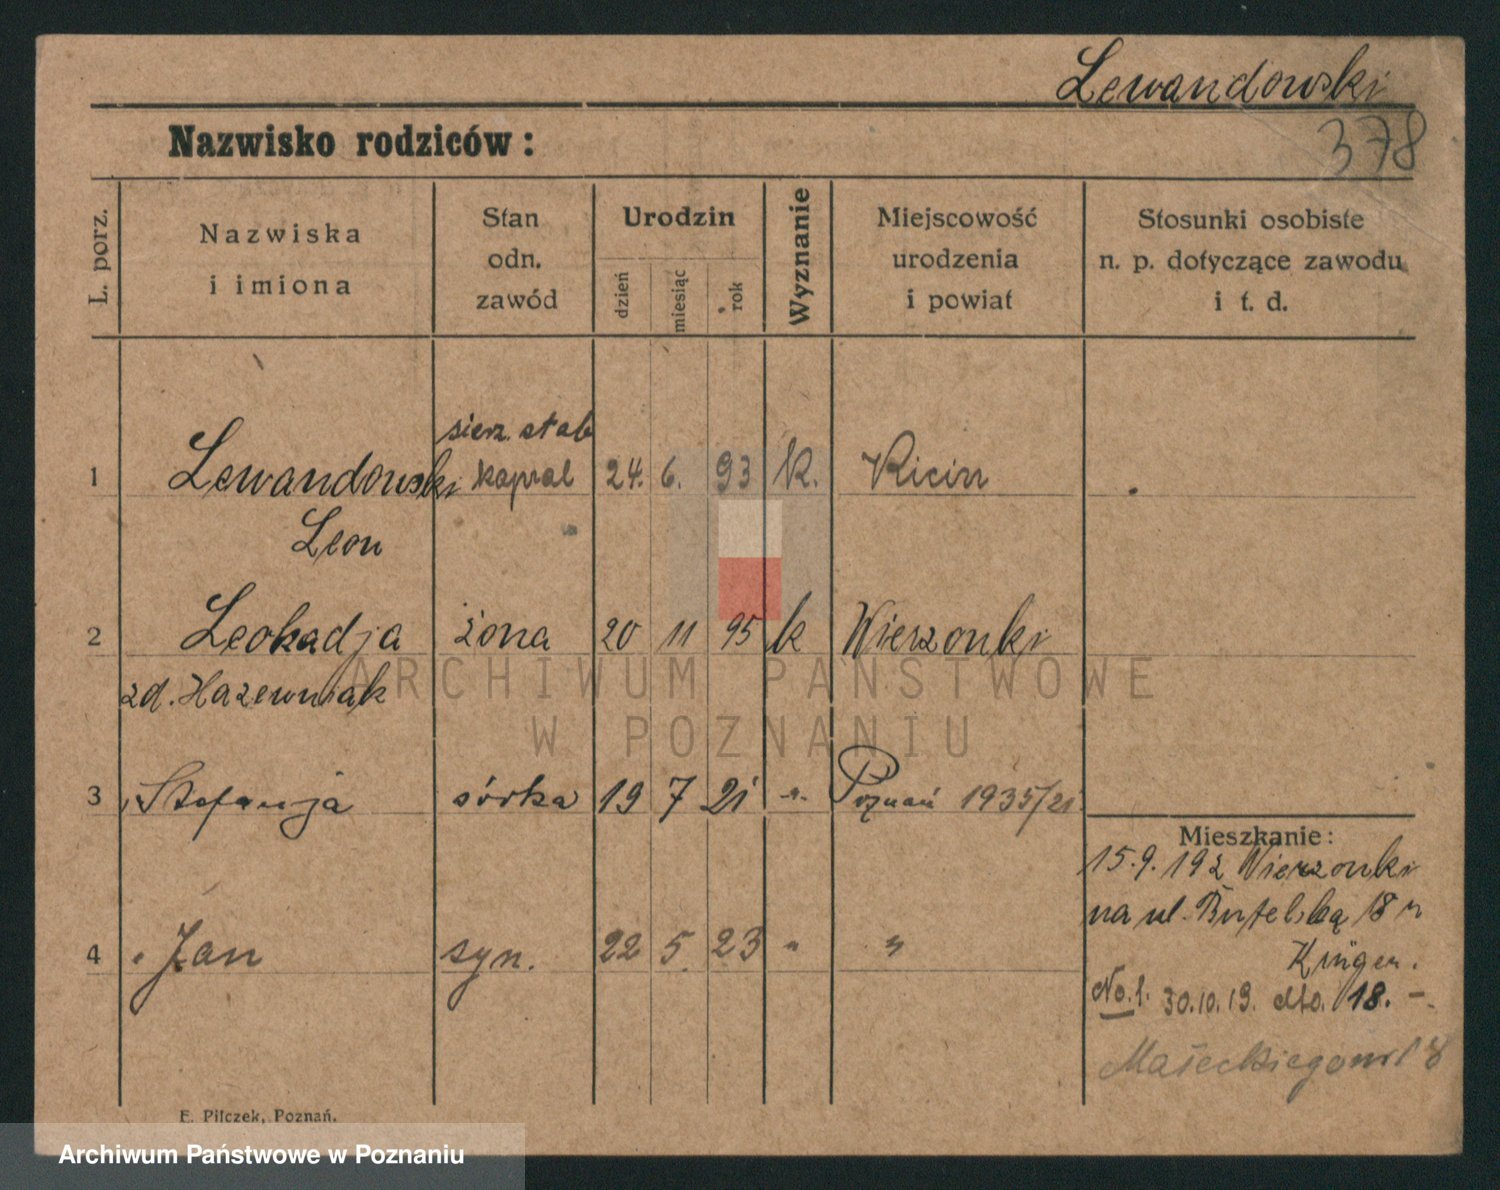 Lewandowski
378
Nazwisko rodziców :
L. porz.
Nazwiska
i imiona
Stan
odn.
zawód
Urodzin
dzień
miesiąc
rok
Wyznanie
Miejscowość
urodzenia
i powiat
Stosunki osobiste
n. p. dotyczące zawodu
i t. d.
1 Lewandowski sierz. stab kapral 24. 6. 93 K. Kicin
Leon
2 Leokadja żona 20 11 95 k Wierzonki
zd. Hazewniak
3 Stefanja córka 19 7 21 -"- Poznań 1935/21
4 " Jan syn. 22 5. 23 " "
Mieszkanie :
15.9.192 Wierzonki
na ul. Butelską 18
Krüger.
No. 1. 30.10.19. dto. 18. –
Małeckiego
E. Pilczek, Poznań.
ARCHIWUM PAŃSTWOWE
W POZNANIU
Archiwum Państwowe w Poznaniu